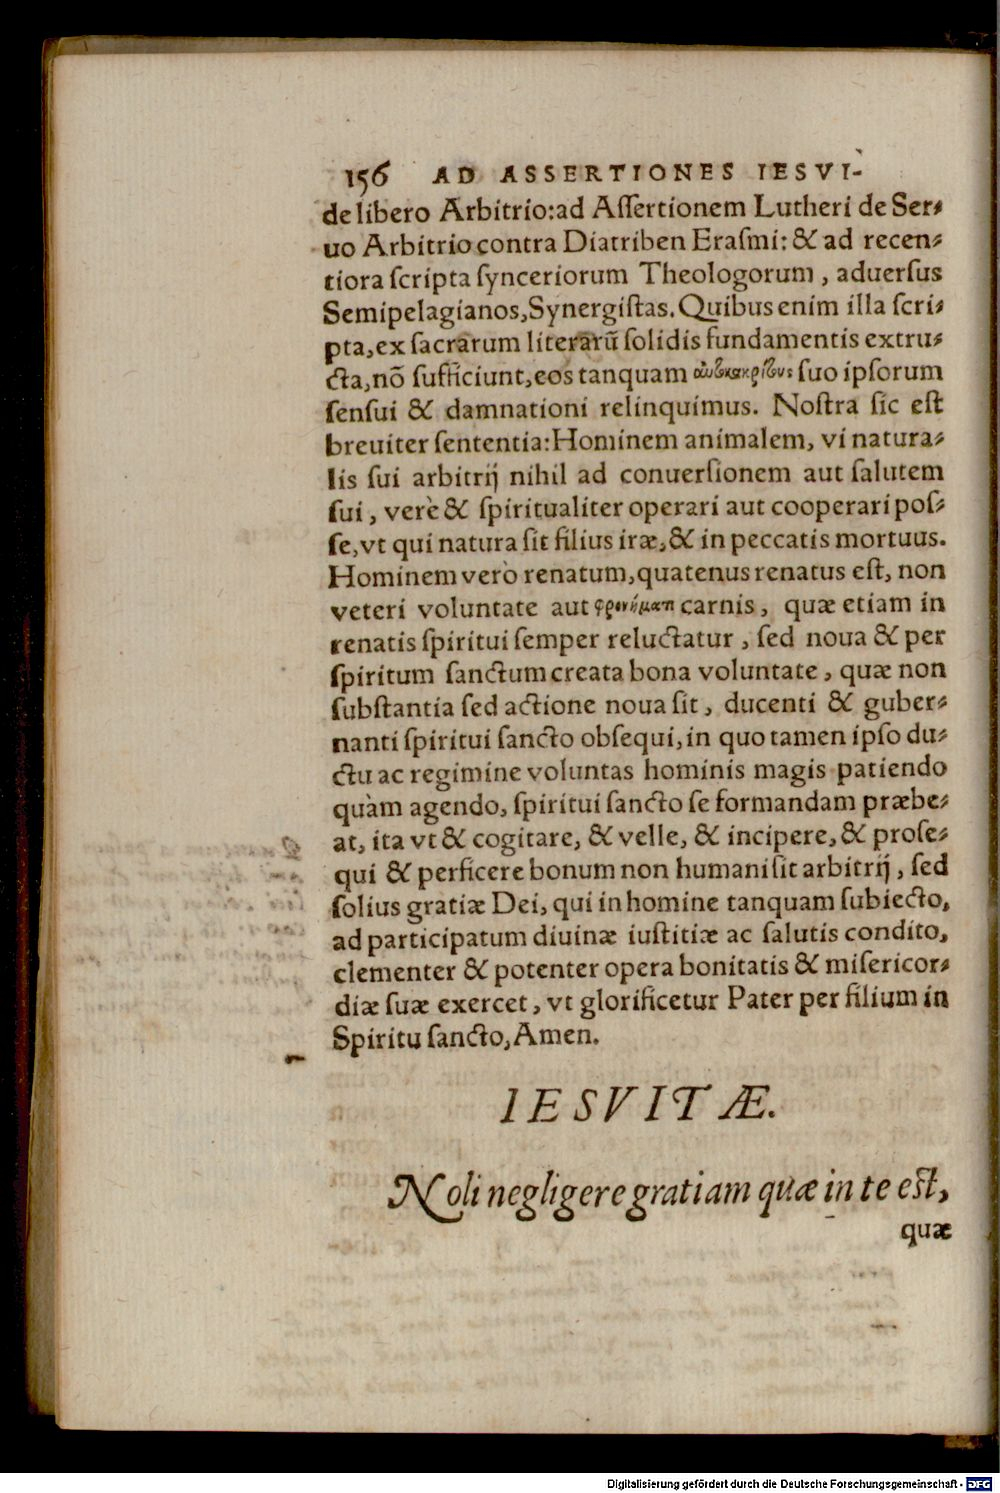 156 AD ASSERTIONES IESVI-
de libero Arbitrio:ad Aſſertionem Lutheri de Ser-
uo Arbitrio contra Diatriben Eraſmi: & ad recen-
tiora ſcripta ſynceriorum Theologorum, aduerſus
Semipelagianos, Synergiſtas. Quibus enim illa ſcri-
pta, ex ſacrarum literarũ ſolidis fundamentis extru-
cta, nõ ſufficiunt, eos tanquam ſuo ipſorum
ſenſui & damnationi relinquimus. Noſtra ſic eſt
breuiter ſententia: Hominem animalem, vi natura-
lis ſui arbitrij nihil ad conuerſionem aut ſalutem
ſui, verè & ſpiritualiter operari aut cooperari poſ-
ſe, vt qui natura ſit filius iræ, & in peccatis mortuus.
Hominem verò renatum, quatenus renatus eſt, non
veteri voluntate aut φρονήματι carnis, quæ etiam in
renatis ſpiritui ſemper reluctatur, ſed noua & per
ſpiritum ſanctum creata bona voluntate, quæ non
ſubſtantia ſed actione noua ſit, ducenti & guber-
nanti ſpiritui ſancto obſequi, in quo tamen ipſo du-
ctu ac regimine voluntas hominis magis patiendo
quàm agendo, ſpiritui ſancto ſe formandam præbe-
at, ita vt & cogitare, & velle, & incipere, & proſe-
qui & perficere bonum non humani ſit arbitrij, ſed
ſolius gratiæ Dei, qui in homine tanquam ſubiecto,
ad participatum diuinæ iuſtitiæ ac ſalutis condito,
clementer & potenter opera bonitatis & miſericor-
diæ ſuæ exercet, vt glorificetur Pater per filium in
Spiritu ſancto, Amen.
IESVITÆ.
Noli negligere gratiam quæ in te eſt,
quæ
Digitalisierung gefördert durch die Deutsche Forschungsgemeinschaft - DFG